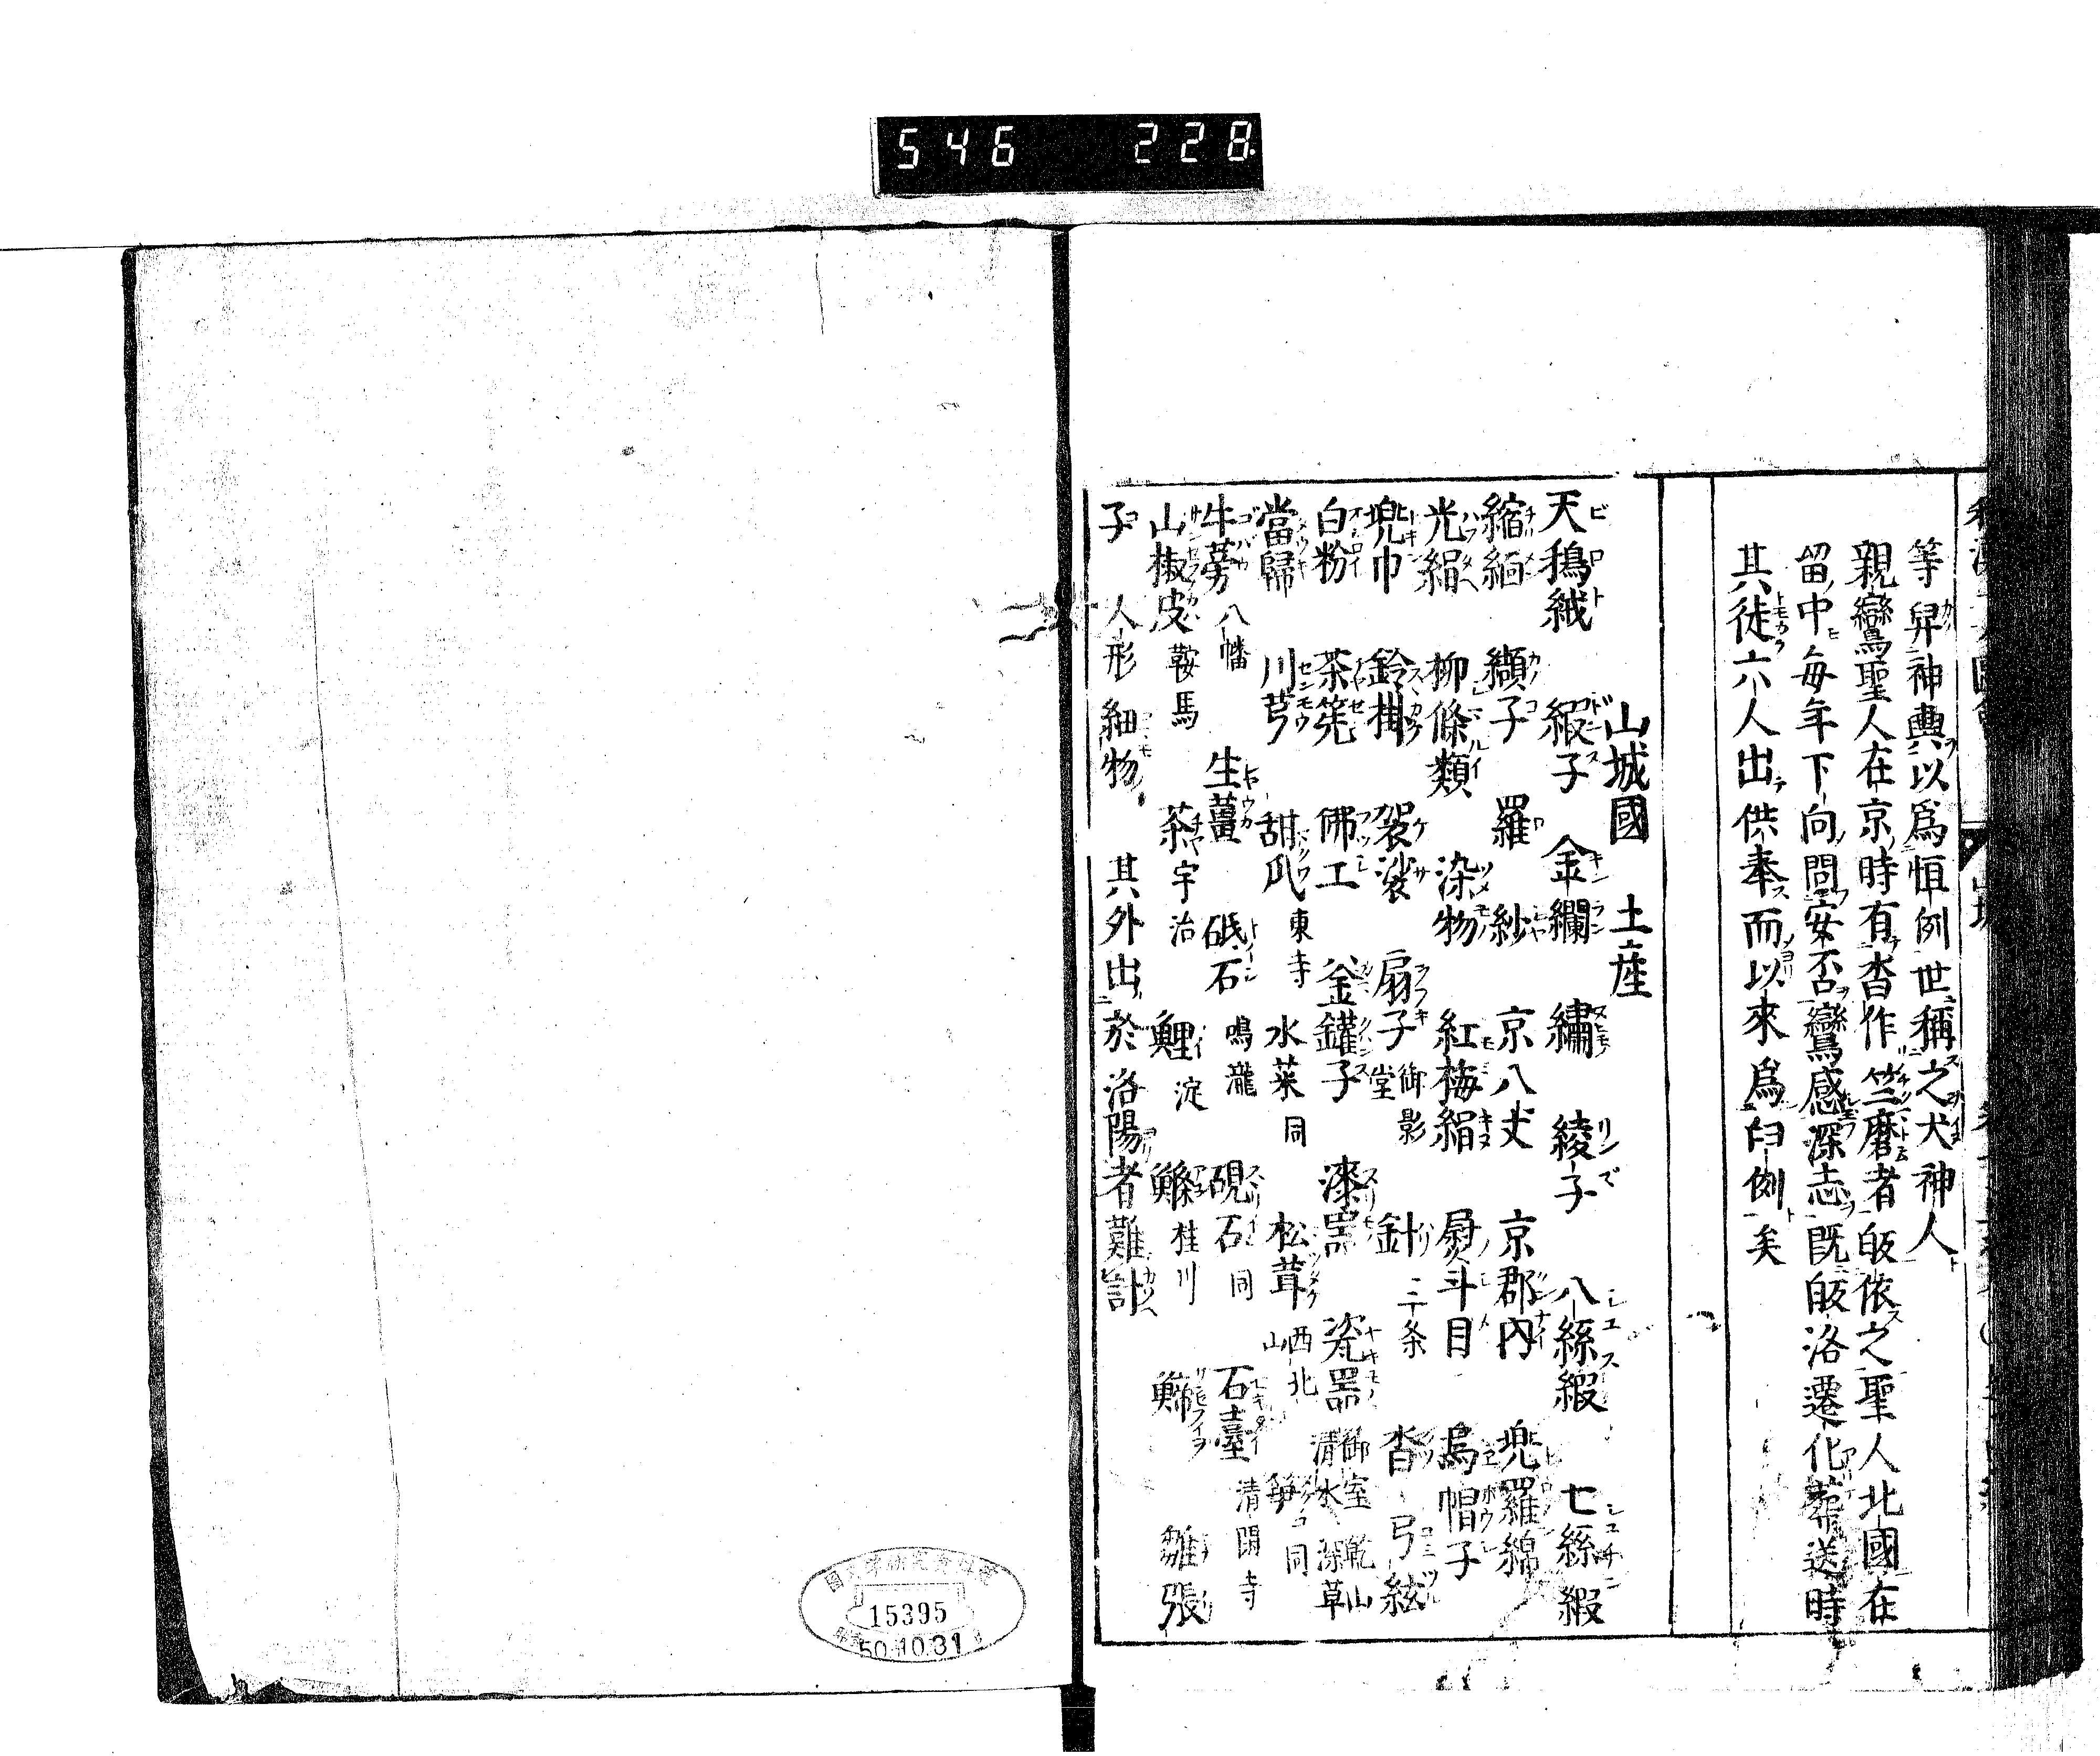 546 228
等舁神輿以爲恒例世稱之犬神人
親鸞聖人在京時有沓作竺磨者皈依之聖人北國在
留中毎年下向問安否鸞感深志既皈洛遷化葬送時
其徒六人出供奉而以來爲臼例矣
山城國 土産
天鵝絨 緞子 金襴 繡 綾子 八絲緞 七絲緞
縮緬 纐子 羅 紗 京八丈 京郡内 兜羅綿
光絹 柳條類 染物 紅梅絹 熨斗目 烏帽子
兜巾 鈴掛 袈裟 扇子 御影堂 針 三条 沓 弓絃
白粉 茶筅 佛工 釜鑵子 漆器 瓷器 御室 乾山 清水 深草
當歸 川芎 甜瓜 東寺 水菜 同 松茸 西北山 筍 同
牛蒡 八幡 生薑 砥石 鳴瀧 硯石 同 石臺 清閑寺
山椒皮 鞍馬 茶 宇治 鯉 淀 鰷 桂川 鯑 雛張
子 人形 細物 其外出於洛陽者難計
15395
50.10.31